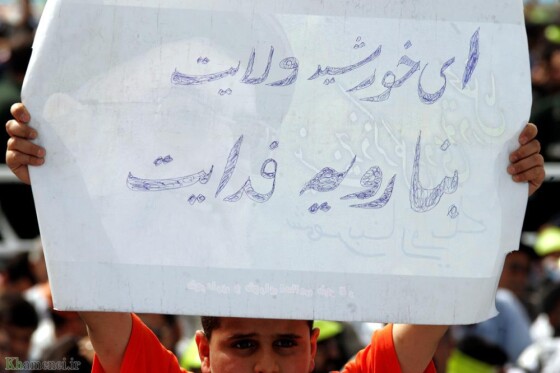 ای خورشید ولایت
بنارویه فدایت
Khamenei.ir